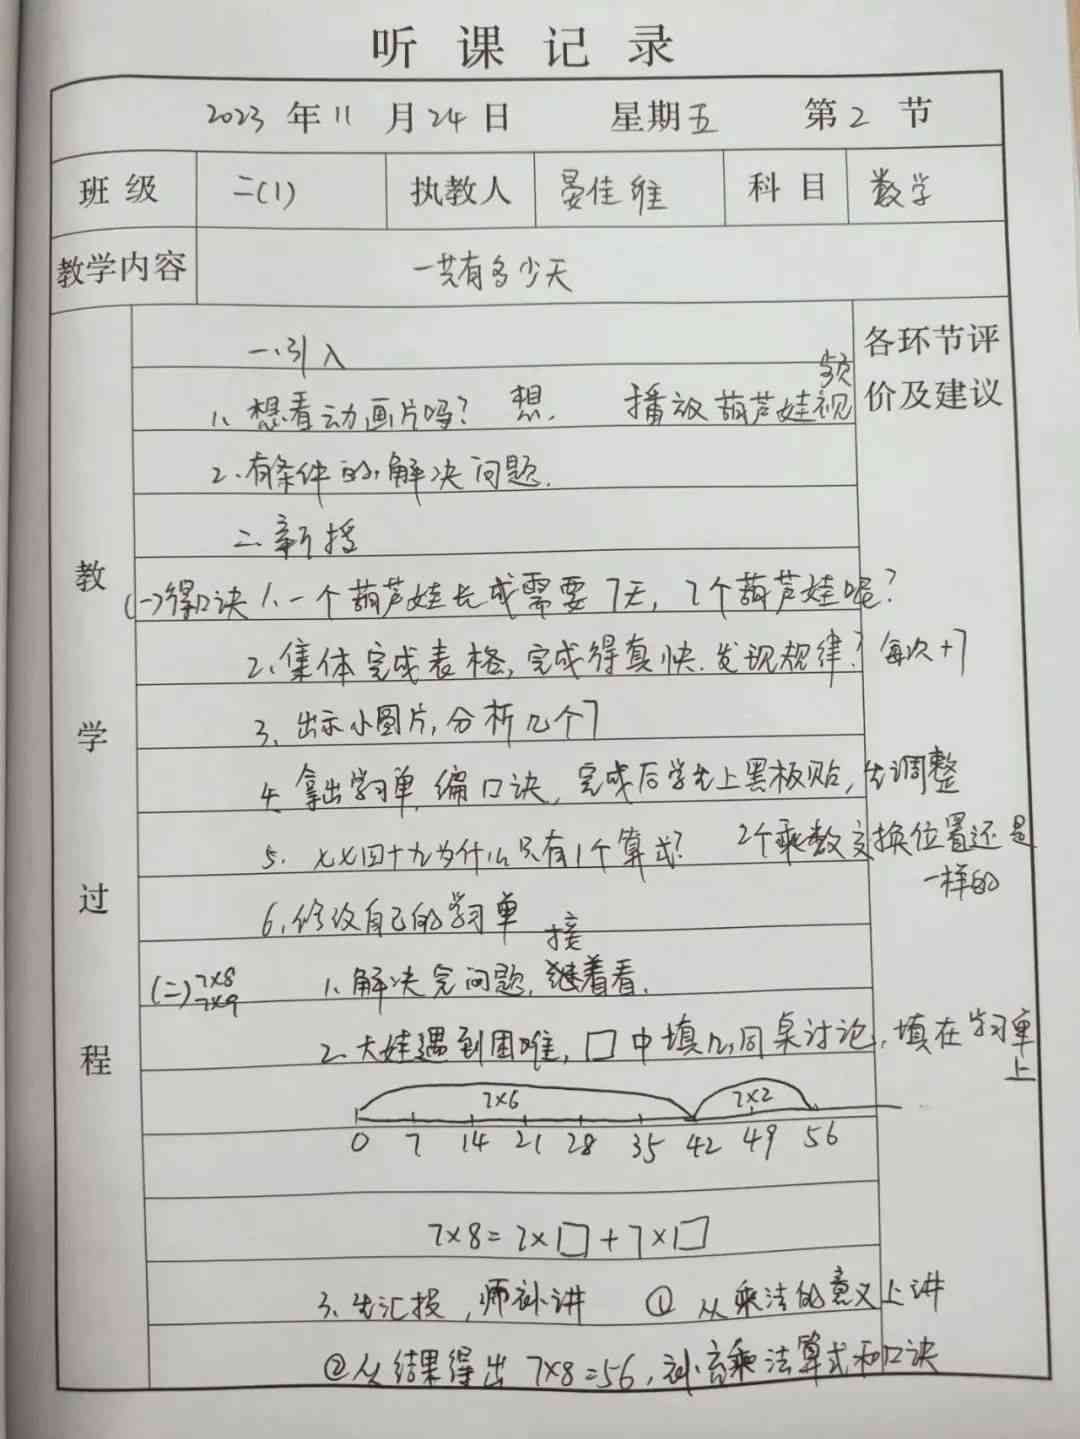 听课记录
2023 年 11 月 24 日 星期五 第 2 节
班级 二(1) 执教人 晏佳维 科目 数学
教学内容 一共有多少天
教学过程
各环节评价及建议
一、引入
1、想看动画片吗? 想. 播放葫芦娃视频
2、有条件的解决问题.
二、新授
(一)得口诀 1、一个葫芦娃长成需要7天, 2个葫芦娃呢?
2、集体完成表格, 完成得真快. 发现规律? 每次+7
3、出示小图片, 分析几个7
4、拿出学习单, 编口诀, 完成后学生上黑板贴, 生调整
5. 七七四十九为什么只有1个算式? 2个乘数交换位置还是一样的
6、修改自己的学习单
(二) 7×8 7×9 1、解决完问题, 接着看.
2、大娃遇到困难, □中填几, 同桌讨论, 填在学习单上
7×6 7×2
0 7 14 21 28 35 42 49 56
7×8=7×□+7×□
3、生汇报, 师补讲 ① 从乘法的意义上讲
②从结果得出 7×8=56, 补充乘法算式和口诀